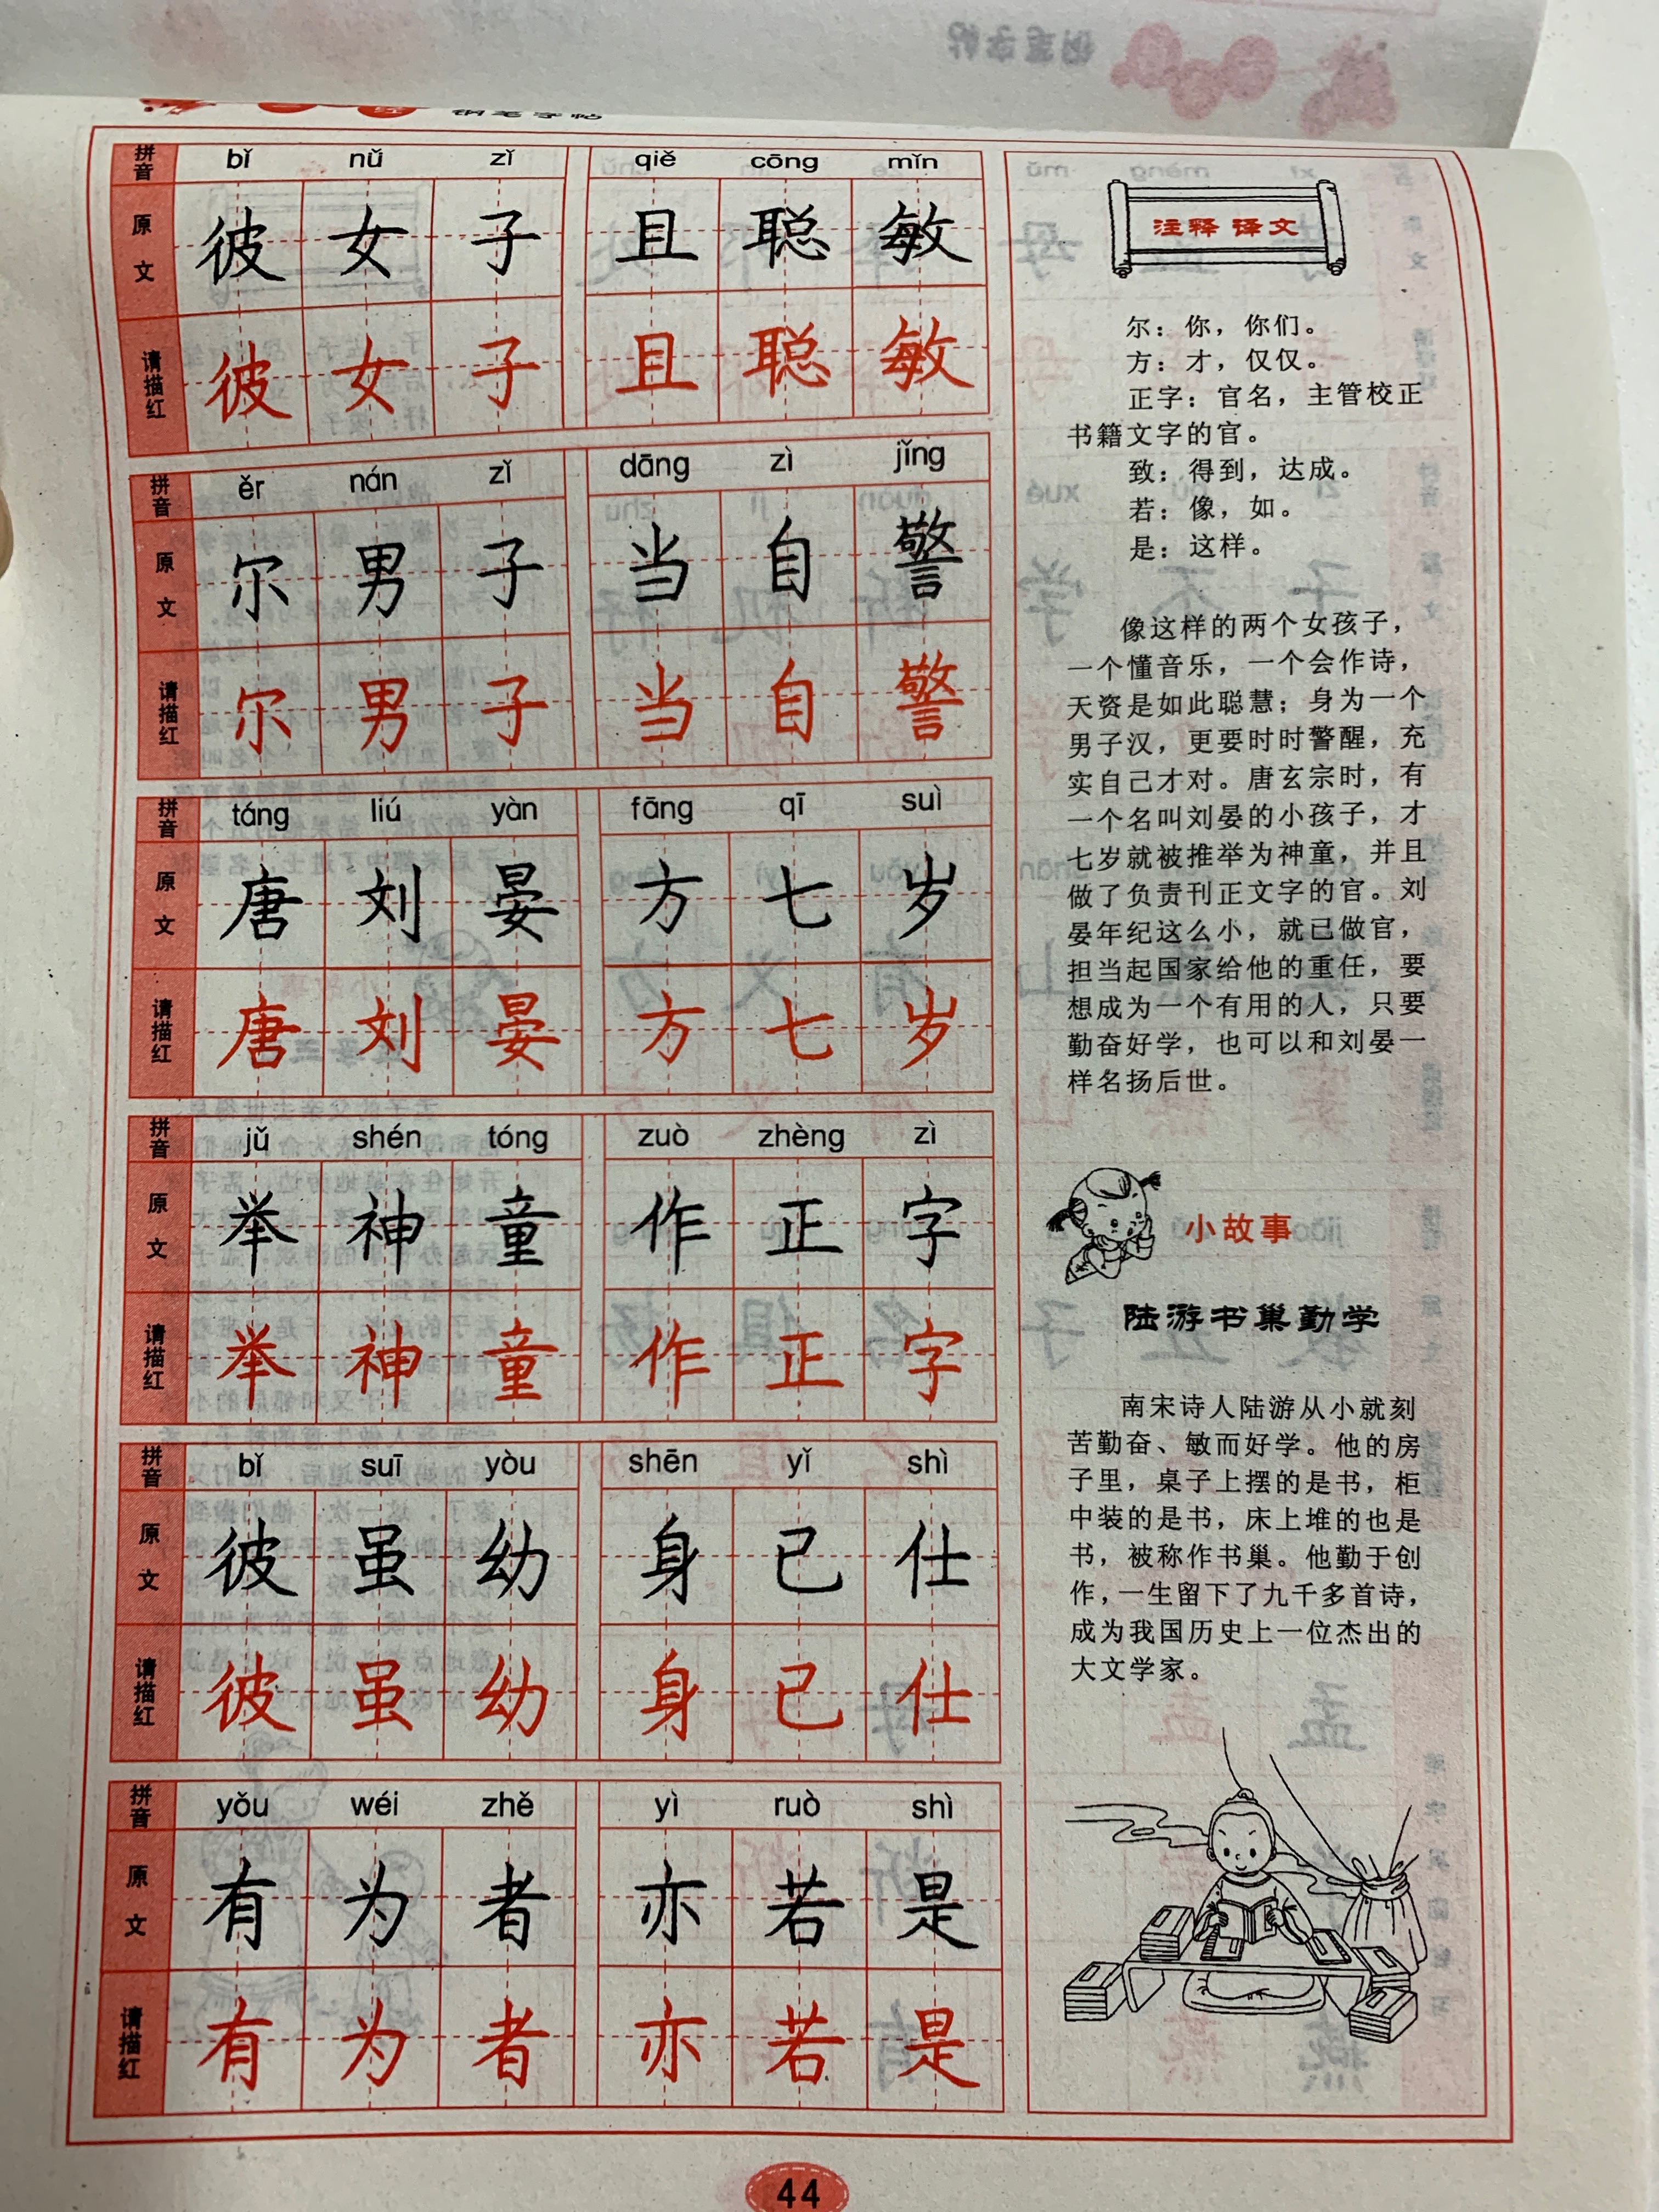 钢笔字帖
拼音 bǐ nǚ zǐ qiě cōng mǐn
原文 彼女子 且聪敏
请描红 彼女子 且聪敏
拼音 ěr nán zǐ dāng zì jǐng
原文 尔男子 当自警
请描红 尔男子 当自警
拼音 táng liú yàn fāng qī suì
原文 唐刘晏 方七岁
请描红 唐刘晏 方七岁
拼音 jǔ shén tóng zuò zhèng zì
原文 举神童 作正字
请描红 举神童 作正字
拼音 bǐ suī yòu shēn yǐ shì
原文 彼虽幼 身已仕
请描红 彼虽幼 身已仕
拼音 yǒu wéi zhě yì ruò shì
原文 有为者 亦若是
请描红 有为者 亦若是
注释 译文
尔：你，你们。
方：才，仅仅。
正字：官名，主管校正
书籍文字的官。
致：得到，达成。
若：像，如。
是：这样。
像这样的两个女孩子，
一个懂音乐，一个会作诗，
天资是如此聪慧；身为一个
男子汉，更要时时警醒，充
实自己才对。唐玄宗时，有
一个名叫刘晏的小孩子，才
七岁就被推举为神童，并且
做了负责刊正文字的官。刘
晏年纪这么小，就已做官，
担当起国家给他的重任，要
想成为一个有用的人，只要
勤奋好学，也可以和刘晏一
样名扬后世。
小故事
陆游书巢勤学
南宋诗人陆游从小就刻
苦勤奋、敏而好学。他的房
子里，桌子上摆的是书，柜
中装的是书，床上堆的也是
书，被称作书巢。他勤于创
作，一生留下了九千多首诗，
成为我国历史上一位杰出的
大文学家。
44